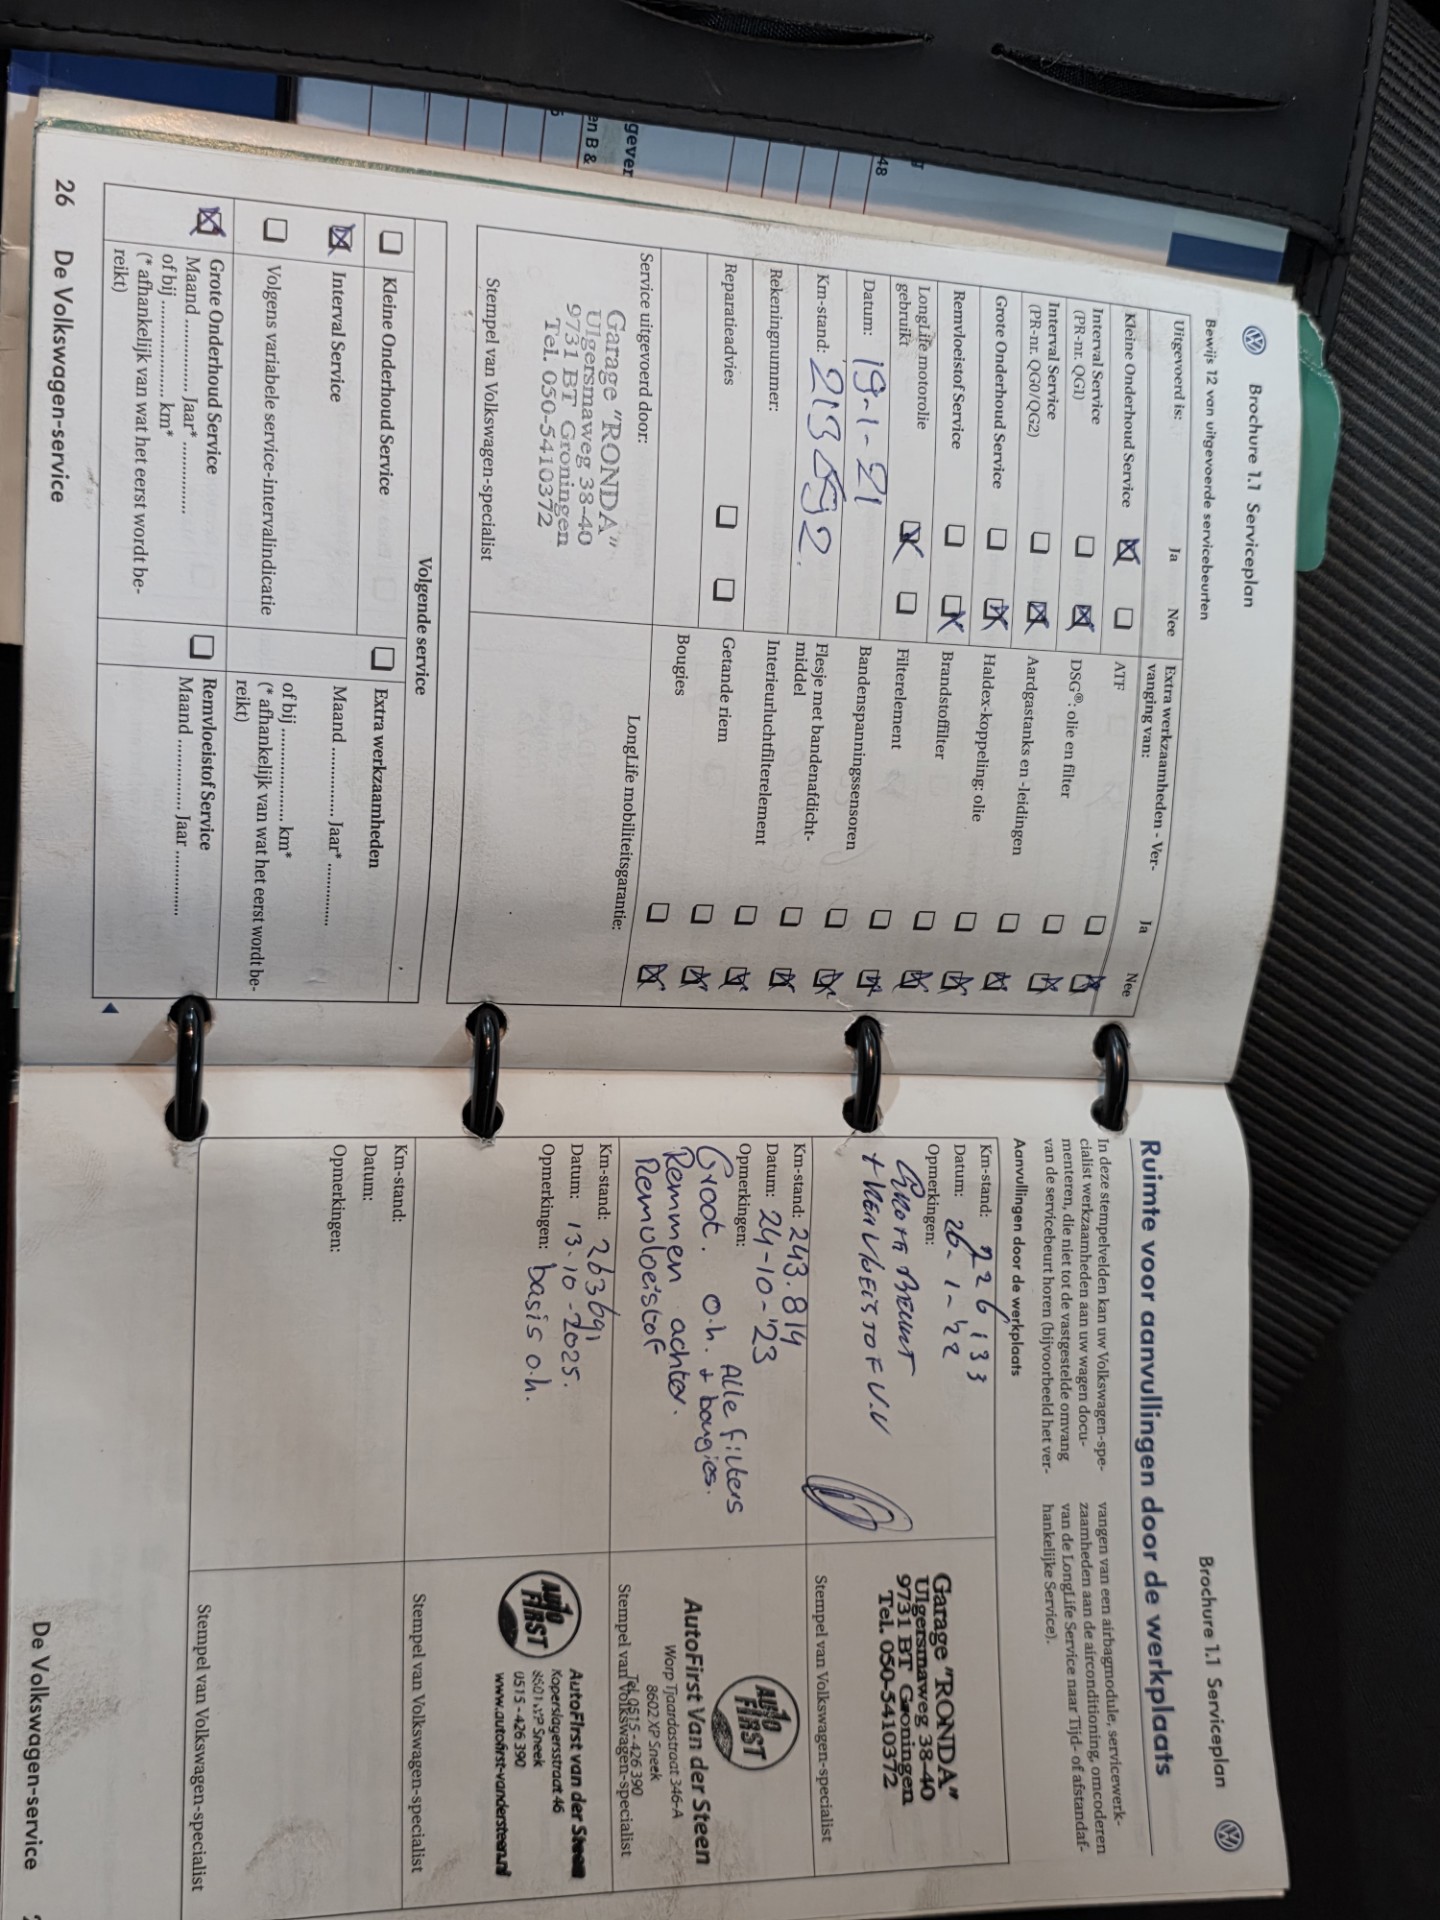 48
gever
en B &
Brochure 1.1 Serviceplan
Bewijs 12 van uitgevoerde servicebeurten
Uitgevoerd is: Ja Nee
Kleine Onderhoud Service
Interval Service
(PR-nr. QG1)
Interval Service
(PR-nr. QG0/QG2)
Grote Onderhoud Service
Remvloeistof Service
LongLife motorolie
gebruikt
Datum: 19-1-21
Km-stand:
Rekeningnummer:
Reparatieadvies
Extra werkzaamheden - Ver-
vanging van: Ja Nee
ATF
DSG®: olie en filter
Aardgastanks en -leidingen
Haldex-koppeling: olie
Brandstoffilter
Filterelement
Bandenspanningssensoren
Flesje met bandenafdicht-
middel
Interieurluchtfilterelement
Getande riem
Bougies
LongLife mobiliteitsgarantie:
Service uitgevoerd door:
Garage "RONDA"
Ulgersmaweg 38-40
9731 BT Groningen
Tel. 050-5410372
Stempel van Volkswagen-specialist
Volgende service
Kleine Onderhoud Service
Interval Service
Volgens variabele service-intervalindicatie
Grote Onderhoud Service
Maand .............. Jaar* ..............
of bij .................. km*
(* afhankelijk van wat het eerst wordt be-
reikt)
Extra werkzaamheden
Maand .............. Jaar* ..............
of bij .................. km*
(* afhankelijk van wat het eerst wordt be-
reikt)
Remvloeistof Service
Maand .............. Jaar ..............
26 De Volkswagen-service
Brochure 1.1 Serviceplan
Ruimte voor aanvullingen door de werkplaats
In deze stempelvelden kan uw Volkswagen-spe-
cialist werkzaamheden aan uw wagen docu-
menteren, die niet tot de vastgestelde omvang
van de servicebeurt horen (bijvoorbeeld het ver-
vangen van een airbagmodule, servicewerk-
zaamheden aan de airconditioning, omcoderen
van de LongLife Service naar Tijd- of afstandaf-
hankelijke Service).
Aanvullingen door de werkplaats
Km-stand: 226133
Datum: 26-1-'22
Opmerkingen:
GROTE BEURT
+ REMVLOEISTOF V.V
Garage "RONDA"
Ulgersmaweg 38-40
9731 BT Groningen
Tel. 050-5410372
Stempel van Volkswagen-specialist
Km-stand: 243.814
Datum: 24-10-'23
Opmerkingen:
Groot. o.h. Alle filters
+ bougies.
Remmen achter.
Remvloeistof
AUTO FIRST
AutoFirst Van der Steen
Worp Tjaardastraat 346-A
8602 XP Sneek
Tel. 0515 - 426 390
Stempel van Volkswagen-specialist
Km-stand: 263691
Datum: 13-10-2025.
Opmerkingen: basis o.h.
AUTO FIRST
AutoFirst van der Steen
Koperslagersstraat 46
8601 WP Sneek
0515 - 426 390
www.autofirst-vandersteen.nl
Stempel van Volkswagen-specialist
Km-stand:
Datum:
Opmerkingen:
Stempel van Volkswagen-specialist
De Volkswagen-service